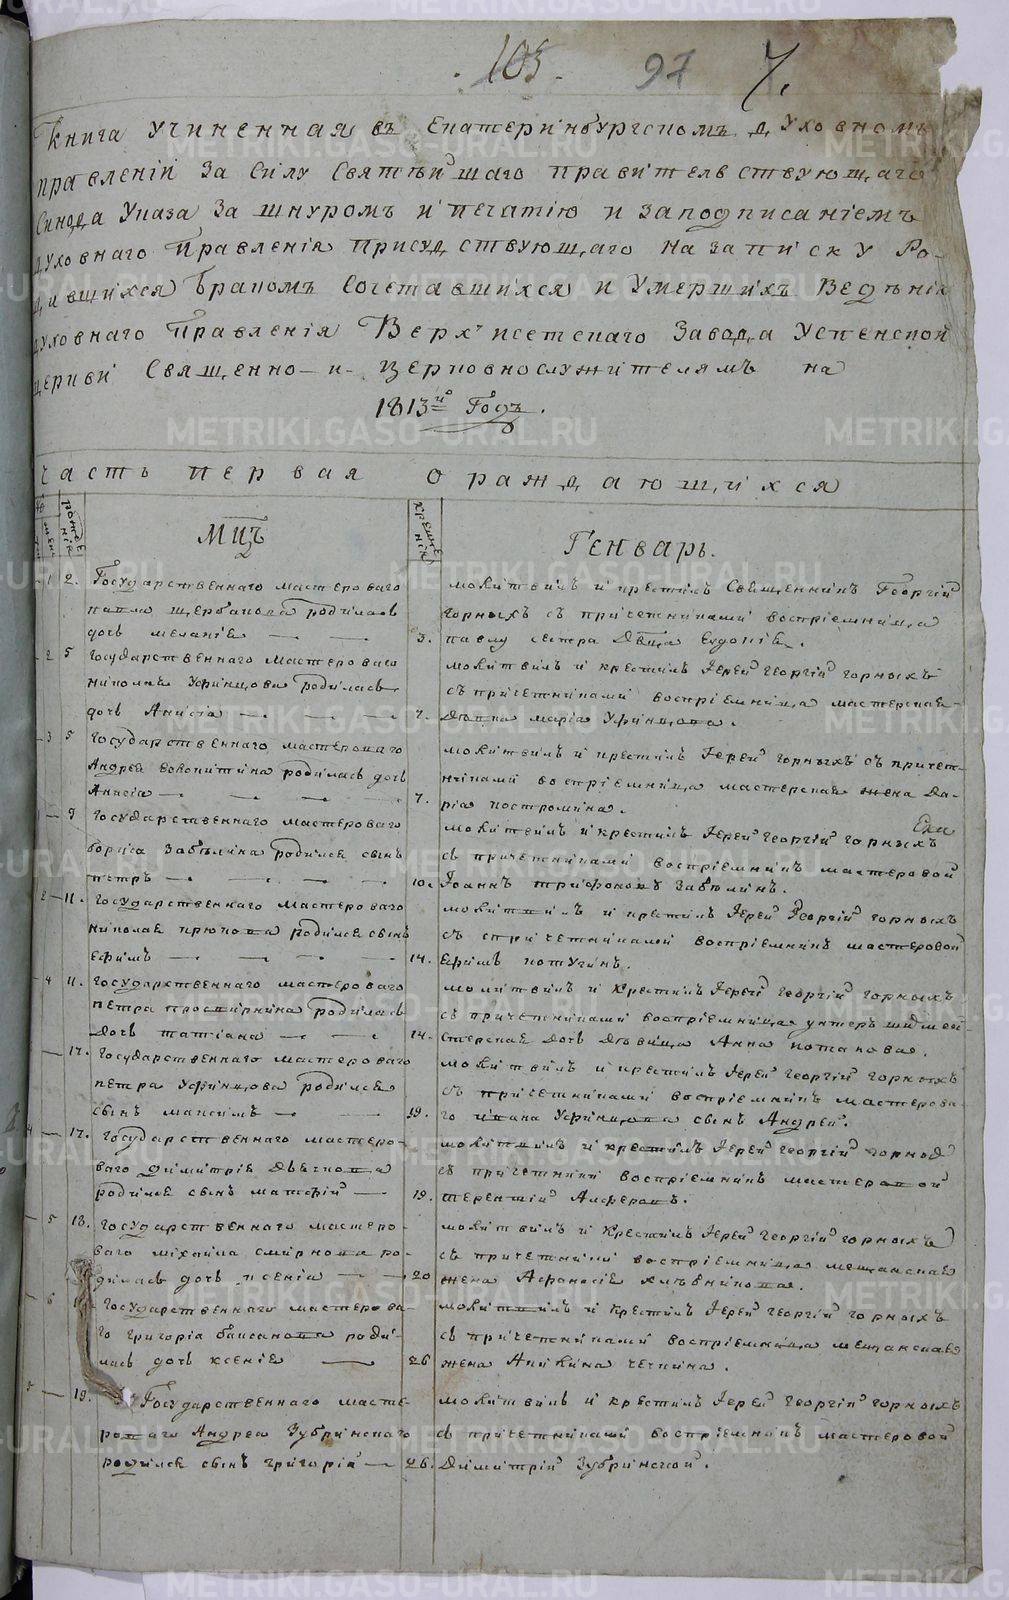 103. 97 7.
Книга учиненная въ Екатеринбургскомъ духовномъ
правленіи за силу Святѣйшаго правительствующаго
Синода Указа за шнуромъ и печатію и заподписаніемъ
духовнаго Правленія присудствующаго на записку Ро-
дившихся бракомъ Сочетавшихся и умершихъ Ведѣнія
духовнаго Правленія Верхъ исетскаго Завода Успенской
церкви Священно- и- церковнослужителямъ на
1813й Годъ.
часть первая о раждающихся
рожде
нія
Мцъ
креще
нія
Генварь.
1 2. Государственнаго мастероваго
павла щербакова родилась
дочь меланія
молитвилъ и крестилъ Священникъ Георгій
горныхъ съ причетниками воспріемница
3. павлу сестра Евдокія.
2 5 Государственнаго мастероваго
николая Уфинцова родилась
дочь Анисія
молитвилъ и крестилъ Іерей Георгій горныхъ
съ причетниками воспріемница мастерская
7. марія Уфинцова.
3 5 Государственнаго мастероваго
Андрея родилась дочь
Анисія
молитвилъ и крестилъ Іерей горныхъ съ причет-
никами воспріемница мастерская жена Да-
7. рія костромина.
9 Государственнаго мастероваго
бориса Забѣлина родился сынъ
петръ
молитвилъ и крестилъ Іерей Георгій горныхъ
съ причетниками воспріемникъ мастеровой
10. Іоаннъ трифоновъ Забѣлинъ.
2 11. Государственнаго мастероваго
николая крюкова родился сынъ
Ефимъ
молитвилъ и крестилъ Іерей Георгій горныхъ
съ причетниками воспріемникъ мастеровой
14. Ефимъ
4 11. Государственнаго мастероваго
петра проскирнина родилась
дочь татіана
молитвилъ и крестилъ Іерей Георгій горныхъ
съ причетниками воспріемница унтеръ шихмей-
14. стерская дочь дѣвица Анна потапова.
17. Государственнаго мастероваго
петра Уфинцова родился
сынъ максимъ
молитвилъ и крестилъ Іерей Георгій горныхъ
съ причетниками воспріемникъ мастерова-
19. го ивана Уфинцова сынъ Андрей.
4 17. Государственнаго мастеро-
ваго димитрія дьячкова
родился сынъ матфій
молитвилъ и крестилъ Іерей Георгій
съ причетники воспріемникъ мастеровой
19. терентій Алферовъ.
5 18. Государственнаго мастеро-
ваго михаила смирнова ро-
дилась дочь ксенія
молитвилъ и крестилъ Іерей Георгій горныхъ
съ причетники воспріемница мещанская
20 жена Афанасія хлѣбникова.
6 Государственнаго мастерова-
го григорія роди-
лась дочь ксенія
молитвилъ и крестилъ Іерей Георгій горныхъ
съ причетниками воспріемница мещанская
26 жена
5 19. Государственнаго масте-
роваго Андрея Зубринскаго
родился сынъ григорій
молитвилъ и крестилъ Іерей Георгій горныхъ
съ причетниками воспріемникъ мастеровой
26. Димитрій Зубринской.